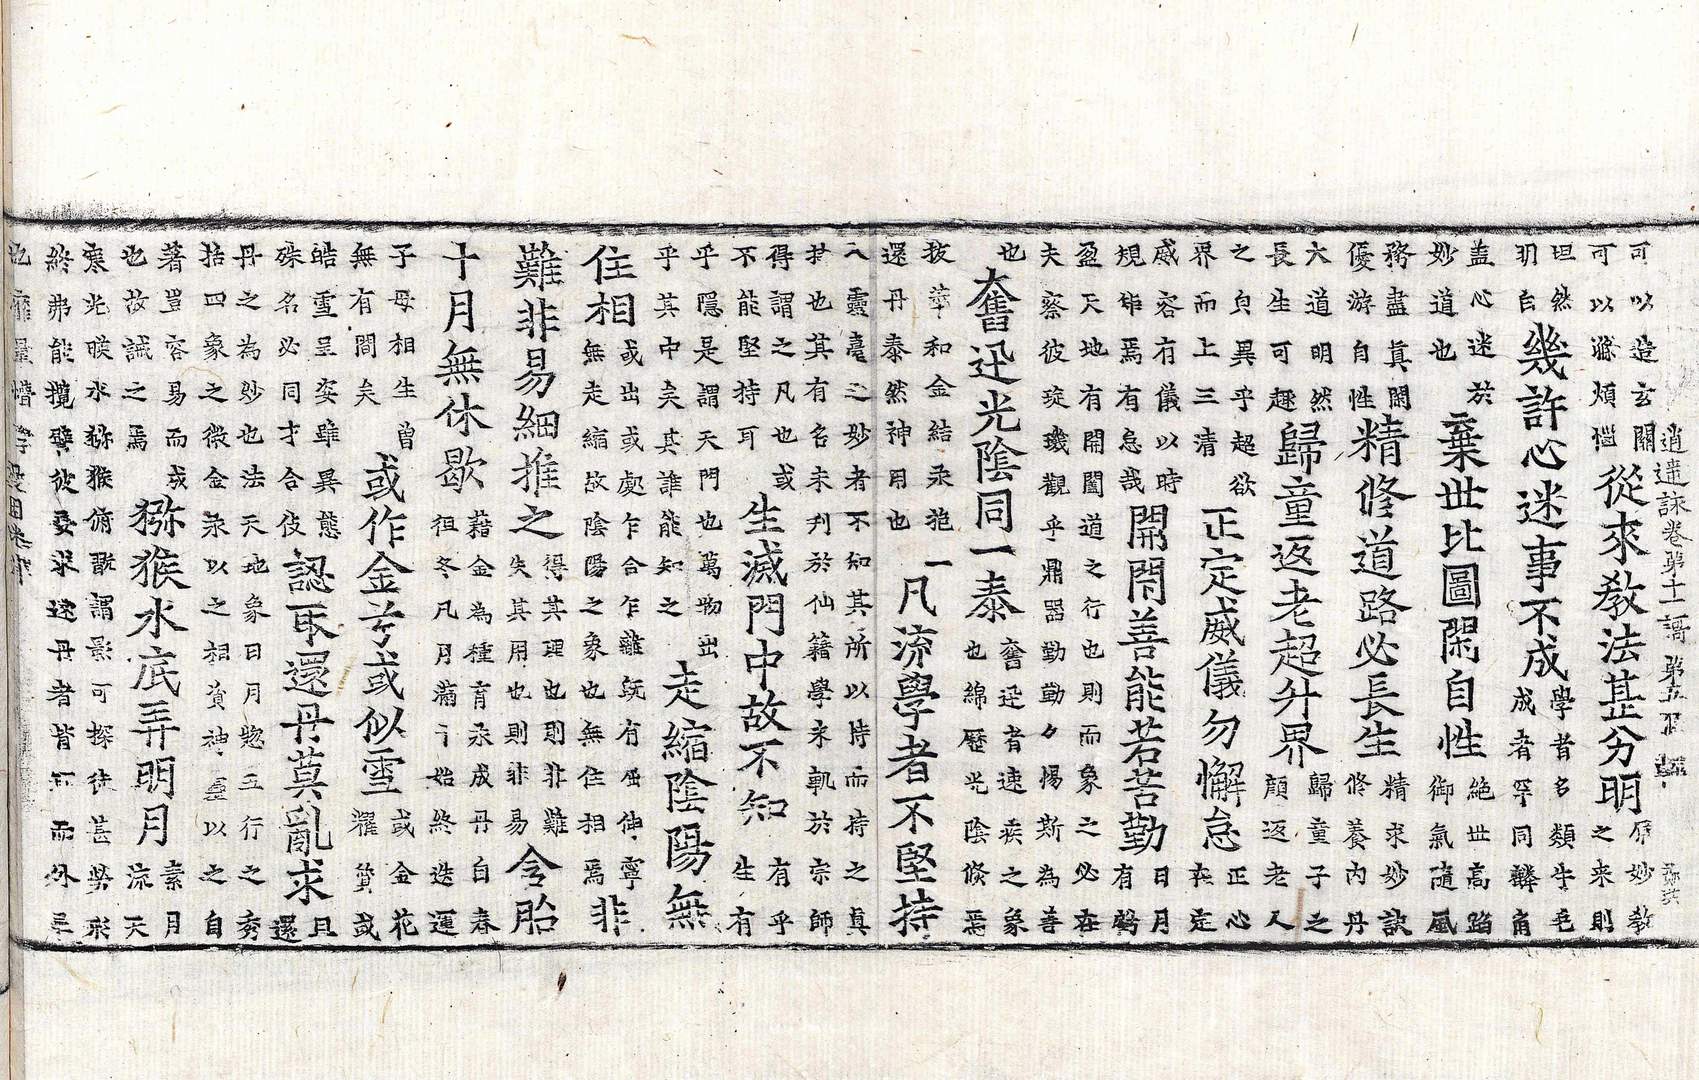 逍遙詠卷第十一 第五
可以造玄關
可以滌煩惱
從來教法甚分明
歷妙教
之来則
坦然
明白
幾許心迷事不成
學者多類牛毛
成者罕同麟角
盖心迷於
妙道也
棄世比圖閑自性
絶世高蹈
御氣隨風
務盡真閑
優游自性
精修道路必長生
精求妙訣
修養內丹
大道明然
長生可趣
歸童返老超升界
歸童子之
顔返老人
之貞異乎超欲
界而上三清
正定威儀勿懈怠
正心
在定
感容有儀以時
規矩焉有怠哉
開閇善能若苦勤
日月
有
盈天地有開闔道之行也則而象之必在
夫察彼琁璣觀乎鼎器勤勤々惕斯為善
也
奮迅光陰同一泰
奮迅者速疾之象
也綿歷光陰倐焉
技華和金結汞㐌
還丹泰然神用也
一凡流學者不堅持
入靈毫之妙者不知其所以持而持之真
於也其有名未刋於仙籍學来軌於宗師
得謂之凡也或
不能堅持耳
生滅門中故不知
有乎
生有
乎隱是謂天門也萬物出
乎其中矣其誰能知之
走縮陰陽無
住相
或出或處乍合乍離既有屈伸寧
無走縮故陰陽之象也無住相焉
非
難非易細推之
得其理也則非難
失其用也則非易
令胎
十月無休歇
藉金為種育汞成丹自春
徂冬凡月滿亍始終迭運
子母相生曽
無有間矣
或作金兮或似雪
或金花
糴質或
皓雪呈姿雖異態
殊名必同才合伎
認取還丹莫亂求
且
還
丹之為妙也法天地象日月惣五行之秀
括四象之微金汞以之相貨神靈以之自
著豈容易而成
也故誡之焉
猕猴水底弄明月
素月
流天
寒光暎水猕猴俯翫謂影可探徒甚勞形
終弗能攬譬彼妄求逺丹者皆
而外